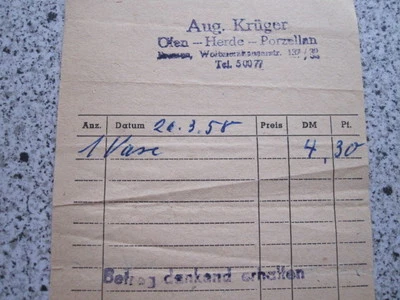 Aug. Krüger
Ofen – Herde – Porzellan
Bremen, Woltmershauserstr. 137/39
Tel. 50077
Anz. Datum 20.3.58 Preis DM Pf.
1 Vase 4,30
Betrag dankend erhalten